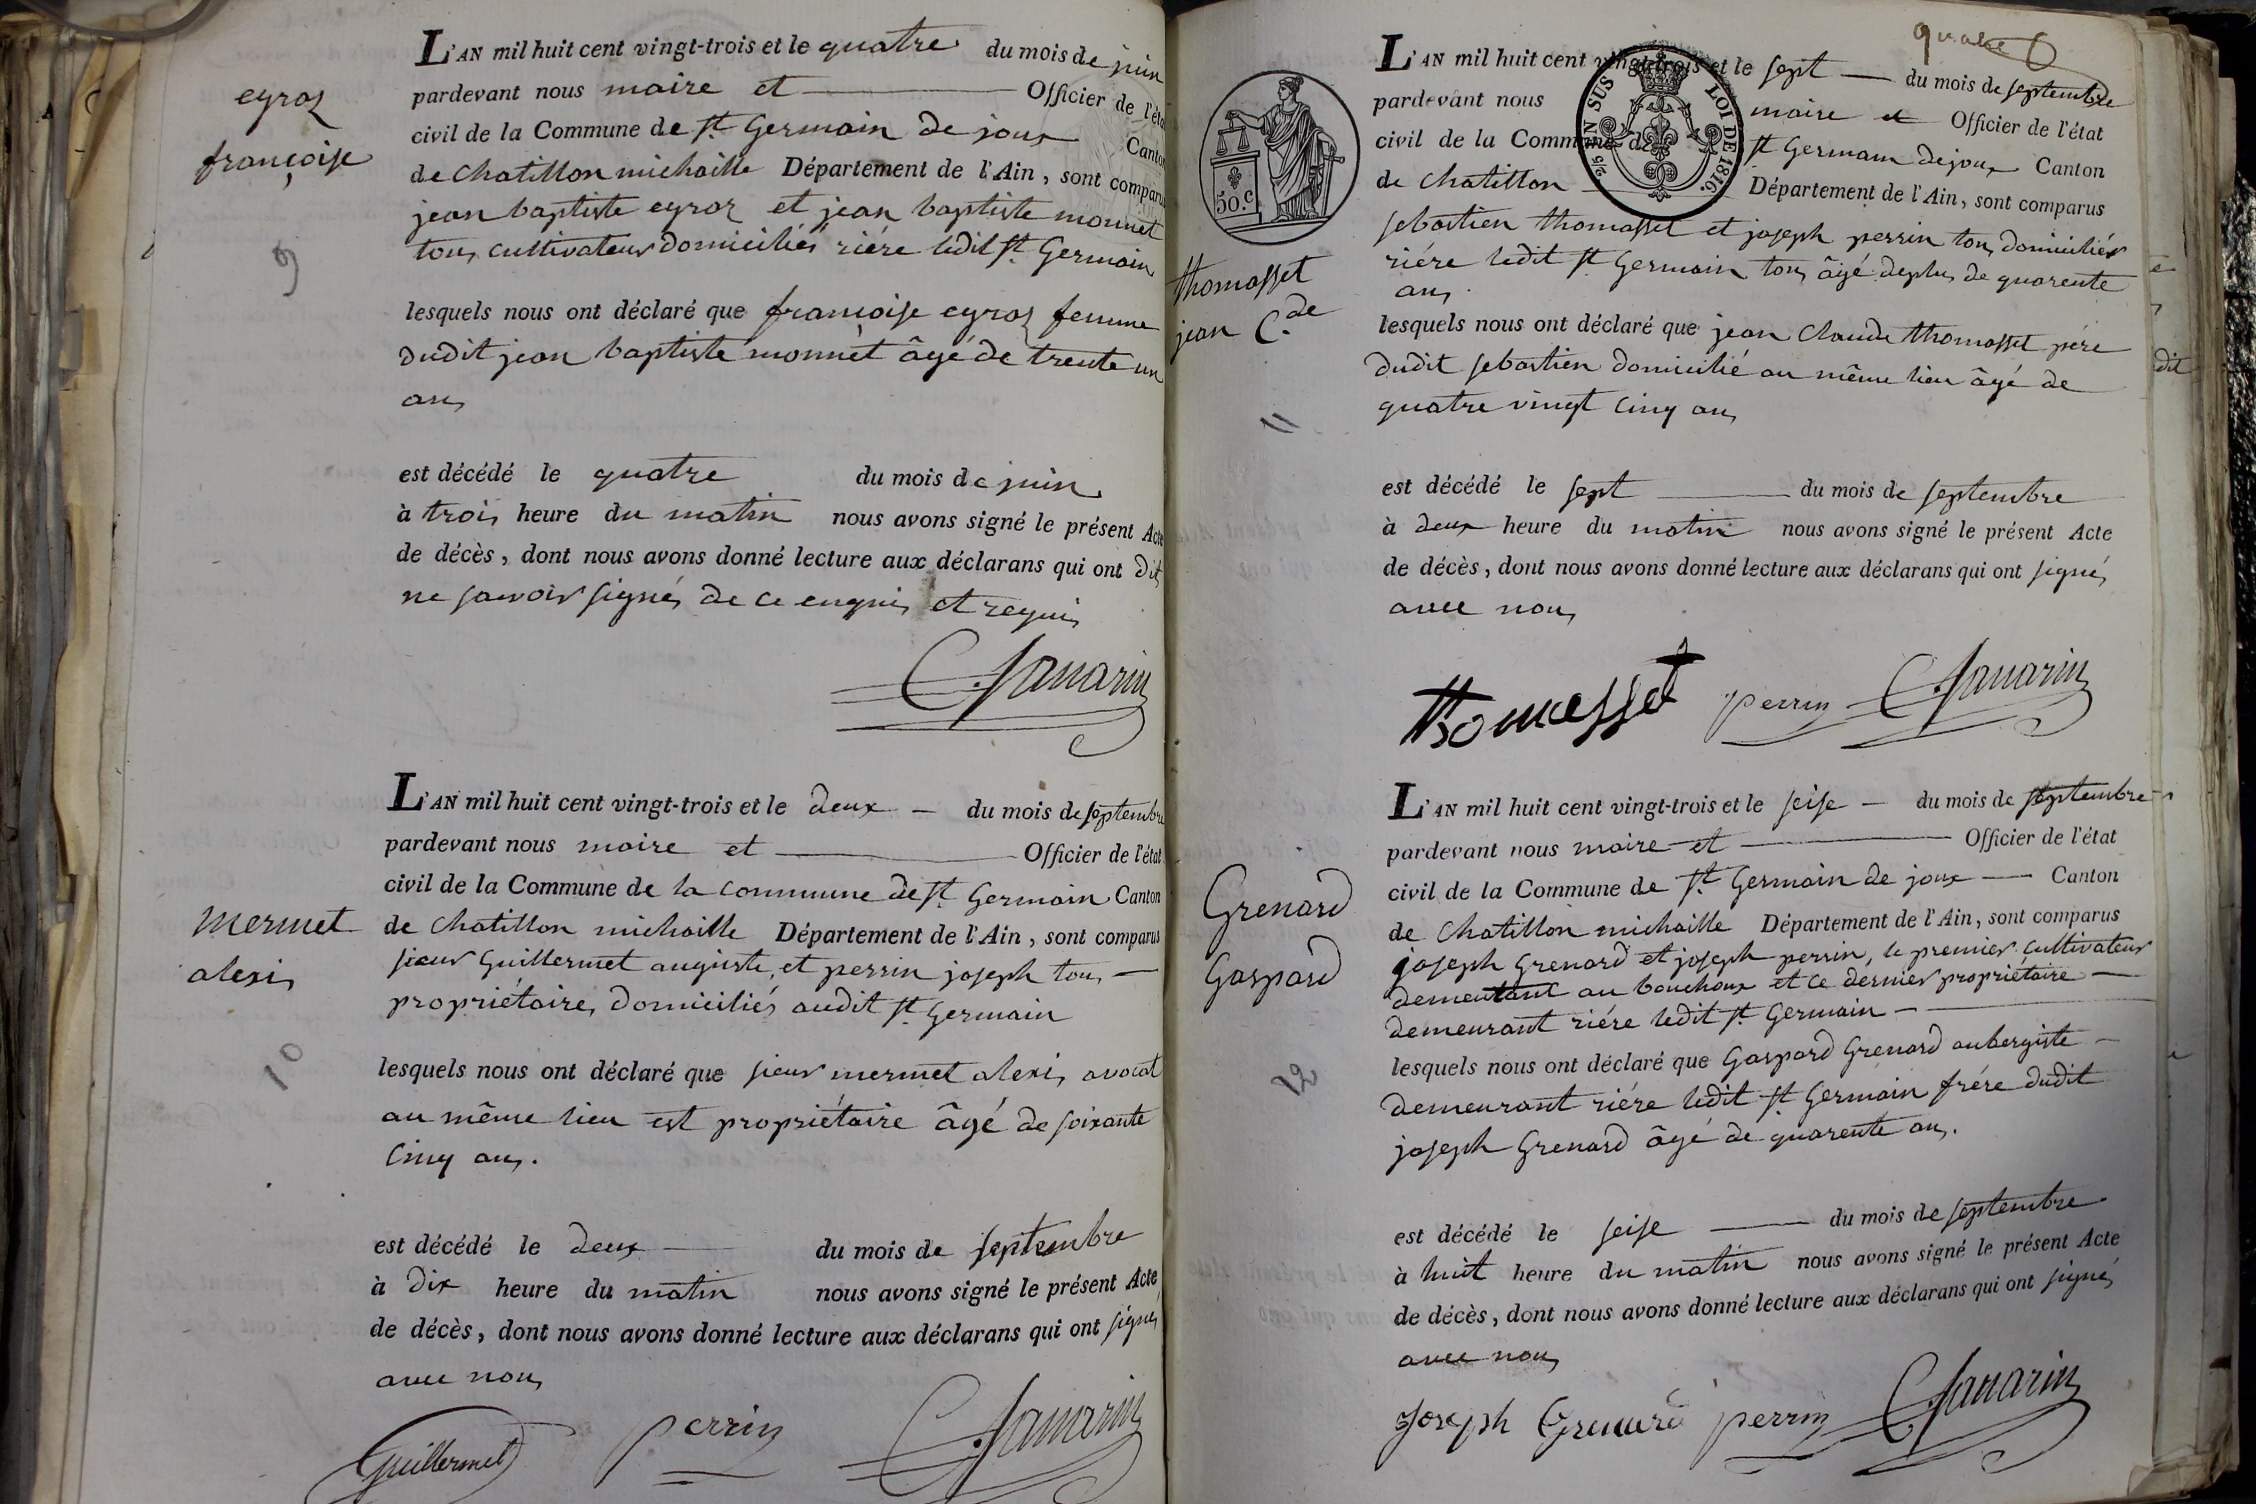 eyroz
françoise
9
L'AN mil huit cent vingt-trois et le quatre du mois de juin
pardevant nous maire et Officier de l'éta
civil de la Commune de St Germain de joux Canton
de Chatillon michaille Département de l'Ain, sont comparus
jean baptiste eyroz et jean baptiste monnet
tous cultivateurs domiciliés riére ledit St Germain
lesquels nous ont déclaré que françoise eyroz femme
dudit jean baptiste monnet âgé de trente un
ans
est décédé le quatre du mois de juin
à trois heure du matin nous avons signé le présent Acte
de décès, dont nous avons donné lecture aux déclarans qui ont dit
ne savoir signés de ce enquis et requis
C. Savarin
mermet
alexis
10
L'AN mil huit cent vingt-trois et le deux du mois de septembre
pardevant nous maire et Officier de l'état
civil de la Commune de la commune de St Germain Canton
de Chatillon michaille Département de l'Ain, sont comparus
sieur Guillermet auguste, et perrin joseph tous
propriétaires domiciliés audit St Germain
lesquels nous ont déclaré que sieur mermet alexis avocat
au même lieu est propriétaire âgé de soixante
cinq ans.
est décédé le deux du mois de septembre
à dix heure du matin nous avons signé le présent Acte
de décès, dont nous avons donné lecture aux déclarans qui ont signés
avec nous
Guillermet perrin C. Savarin
quatre
50.C
2/5 EN SUS LOI DE 1816.
thomasset
jean C.de
11
L'AN mil huit cent vingt-trois et le sept du mois de septembre
pardevant nous maire et Officier de l'état
civil de la Commune de St Germain dejoux Canton
de chatillon Département de l'Ain, sont comparus
sebastien thomasset et joseph perrin tous domiciliés
riére ledit St Germain tous âgé deplus de quarente
ans
lesquels nous ont déclaré que jean Claude thomasset pére
dudit sebastien domicilié au même lieu âgé de
quatre vingt cinq ans
est décédé le sept du mois de septembre
à deux heure du matin nous avons signé le présent Acte
de décès, dont nous avons donné lecture aux déclarans qui ont signés
avec nous
thomasset perrin C. Savarin
Grenard
Gaspard
12
L'AN mil huit cent vingt-trois et le seise du mois de septembre
pardevant nous maire et Officier de l'état
civil de la Commune de St Germain de joux Canton
de Chatillon michaille Département de l'Ain, sont comparus
joseph Grenard et joseph perrin, le premier cultivateur
demeutant au bouchoux et ce dernier propriétaire
demeurant riére ledit St Germain
lesquels nous ont déclaré que Gaspard Grenard aubergiste
demeurant riére ledit St Germain frére dudit
joseph Grenard âgé de quarente ans.
est décédé le seise du mois de septembre
à huit heure du matin nous avons signé le présent Acte
de décès, dont nous avons donné lecture aux déclarans qui ont signés
avec nous
Joseph Grenard perrin C. Savarin
dit